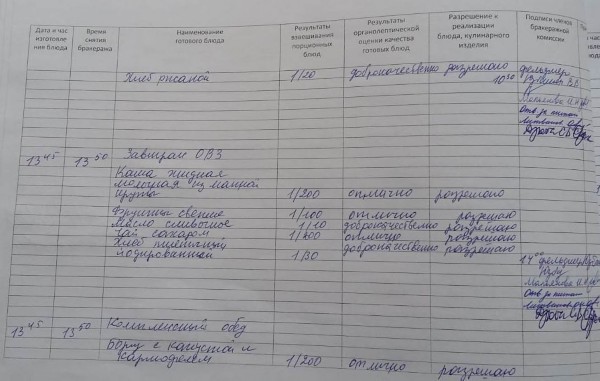 Дата и час изготовле ния блюда
Время снятия бракеража
Наименование готового блюда
Результаты взвешивания порционных блюд
Результаты органолептической оценки качества готовых блюд
Разрешение к реализации блюда, кулинарного изделия
Подписи членов бракеражной комиссии
Хлеб ржаной 1/20 доброкачественно разрешаю
10 30 фельдшер
Отв за питан
13 45 13 50 Завтрак ОВЗ
Каша жидная
молочная из манной
крупы 1/200 отлично разрешаю
Фрукты свежие 1/100 отлично разрешаю
Масло сливочное 1/10 доброкачественно разрешаю
Чай сахаром 1/200 отлично разрешаю
Хлеб пшеничный доброкачественно разрешаю
йодированный 1/30
14 00 фельдшер
Отв за питан
13 45 13 50 Комплексный обед
Борщ с капустой и
картофелем 1/200 отлично разрешаю